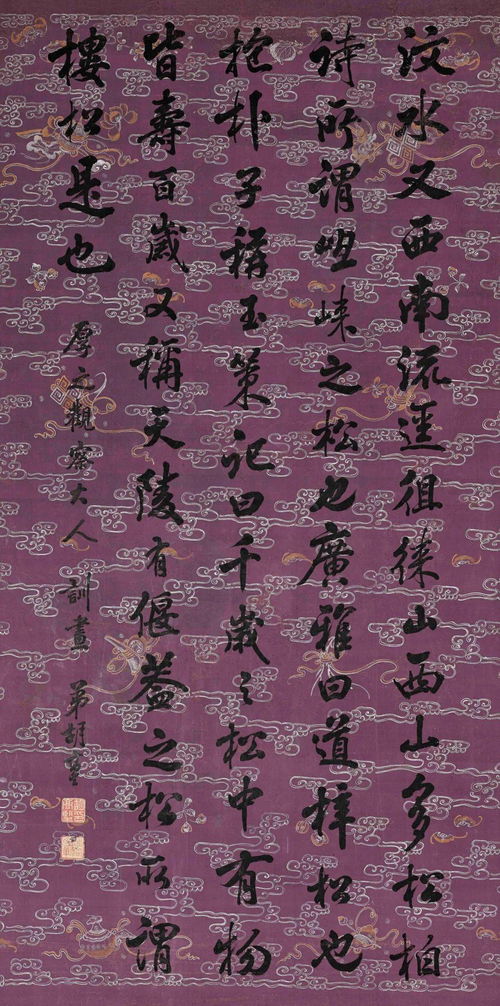 汶水又西南流逕徂徠山西山多松柏
詩所謂岨崍之松也廣雅曰道梓松也
抱朴子稱玉策記曰千歲之松中有物
皆壽百歲又稱天陵有偃蓋之松所謂
樓松是也
厚之觀察大人 訓畫 弟胡